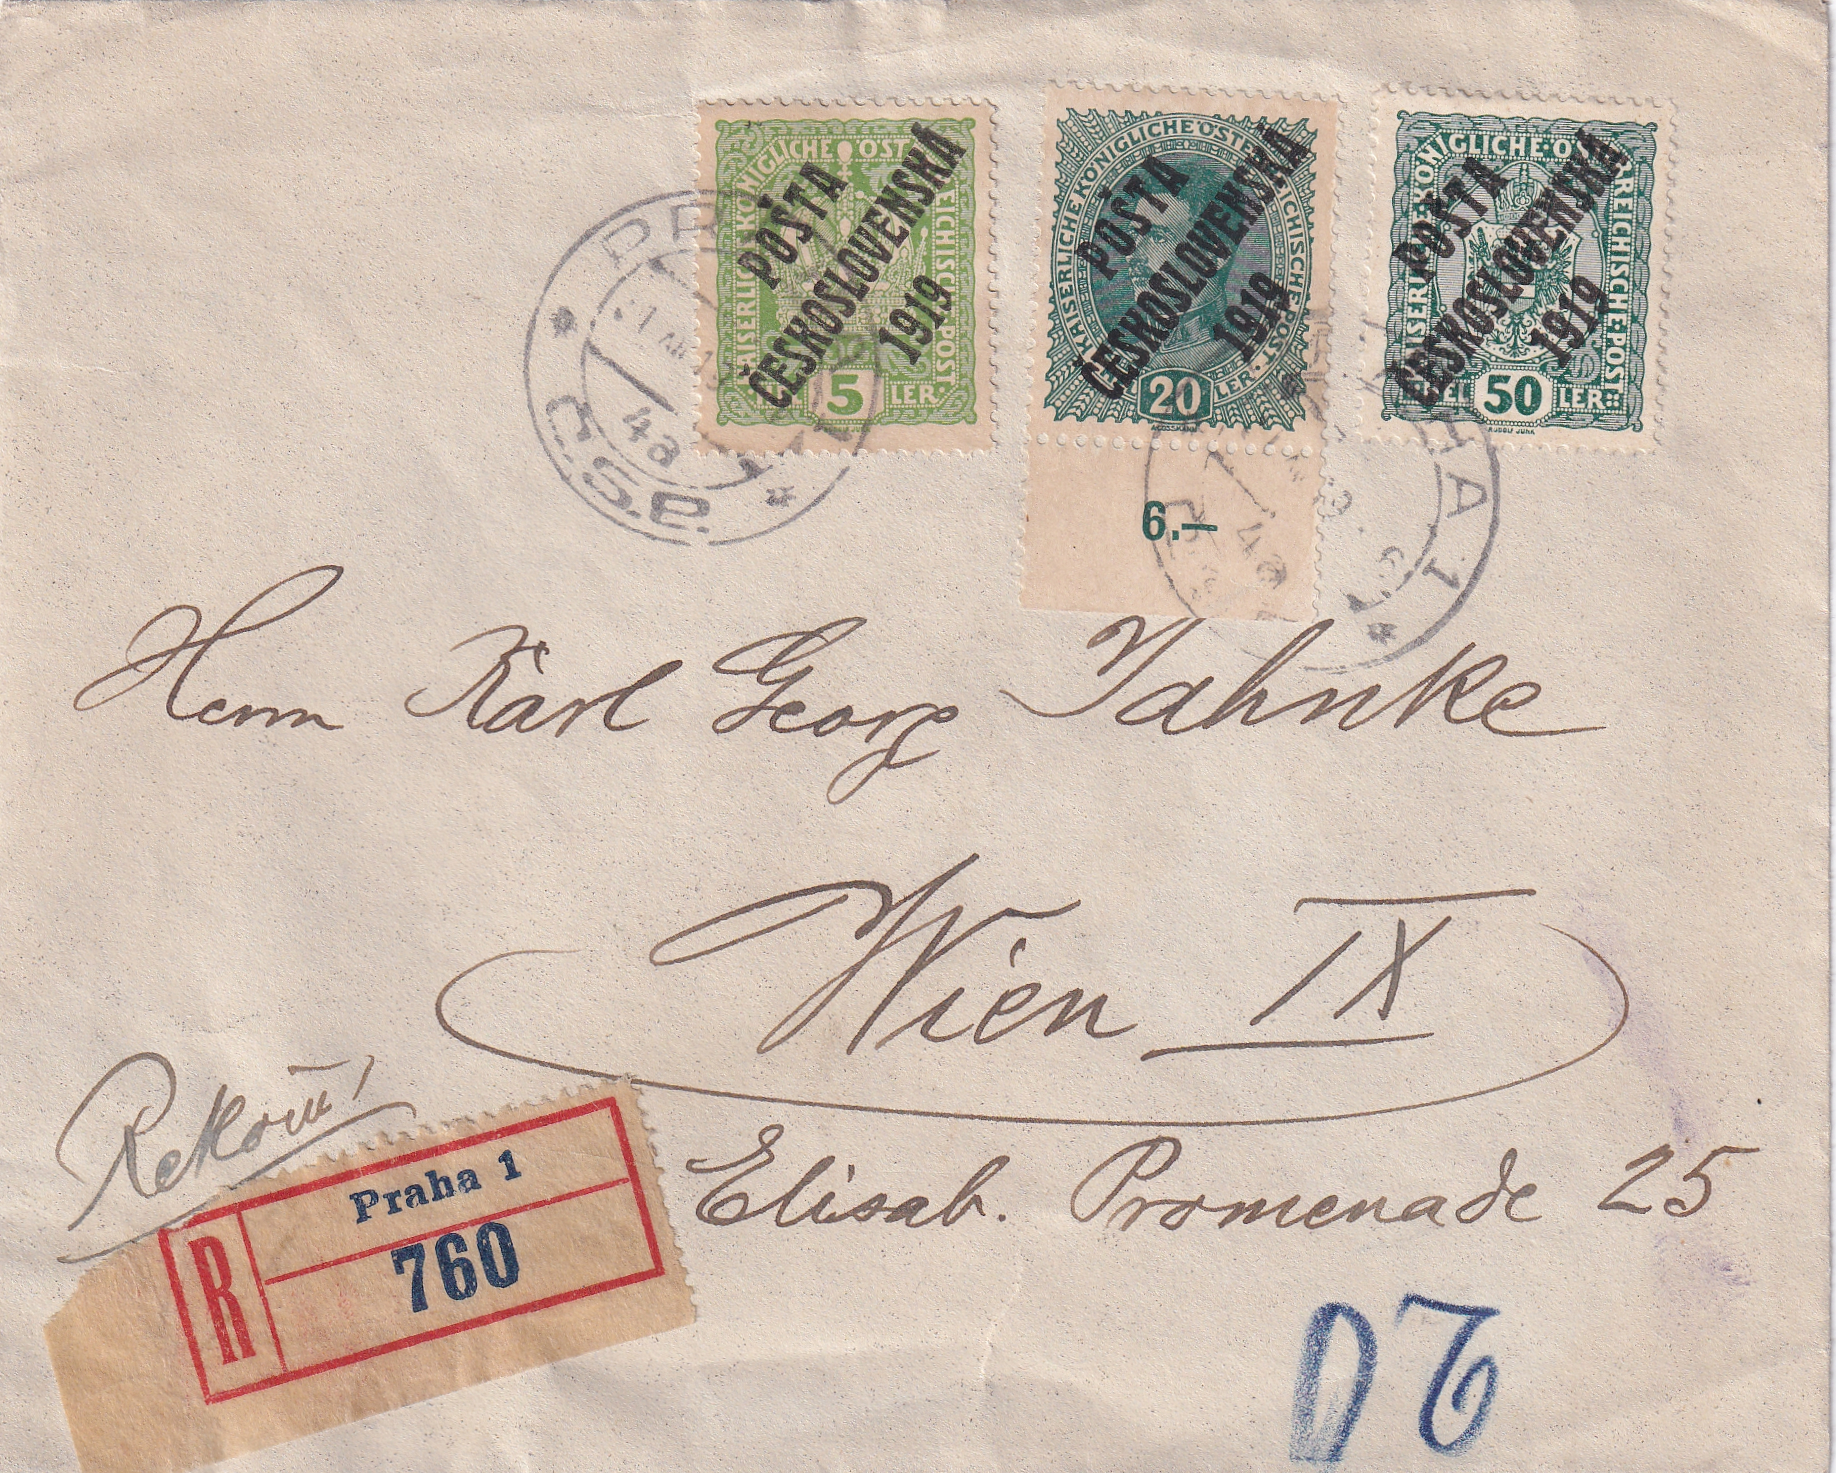 KAISERLICHE KÖNIGLICHE ÖSTERREICHISCHE POST
POŠTA
ČESKOSLOVENSKÁ
1919
5
LER
KAISERLICHE KÖNIGLICHE ÖSTERREICHISCHE POST
POŠTA
ČESKOSLOVENSKÁ
1919
20
LER
6.—
KAISERLICHE KÖNIGLICHE ÖSTERREICHISCHE POST
POŠTA
ČESKOSLOVENSKÁ
1919
50
LER
RUDOLF JUNK
4a
Č.S.P.
PRAHA 1
Herrn Karl Georg Jahnke
Wien IX
Elisab. Promenade 25
Praha 1
R
760